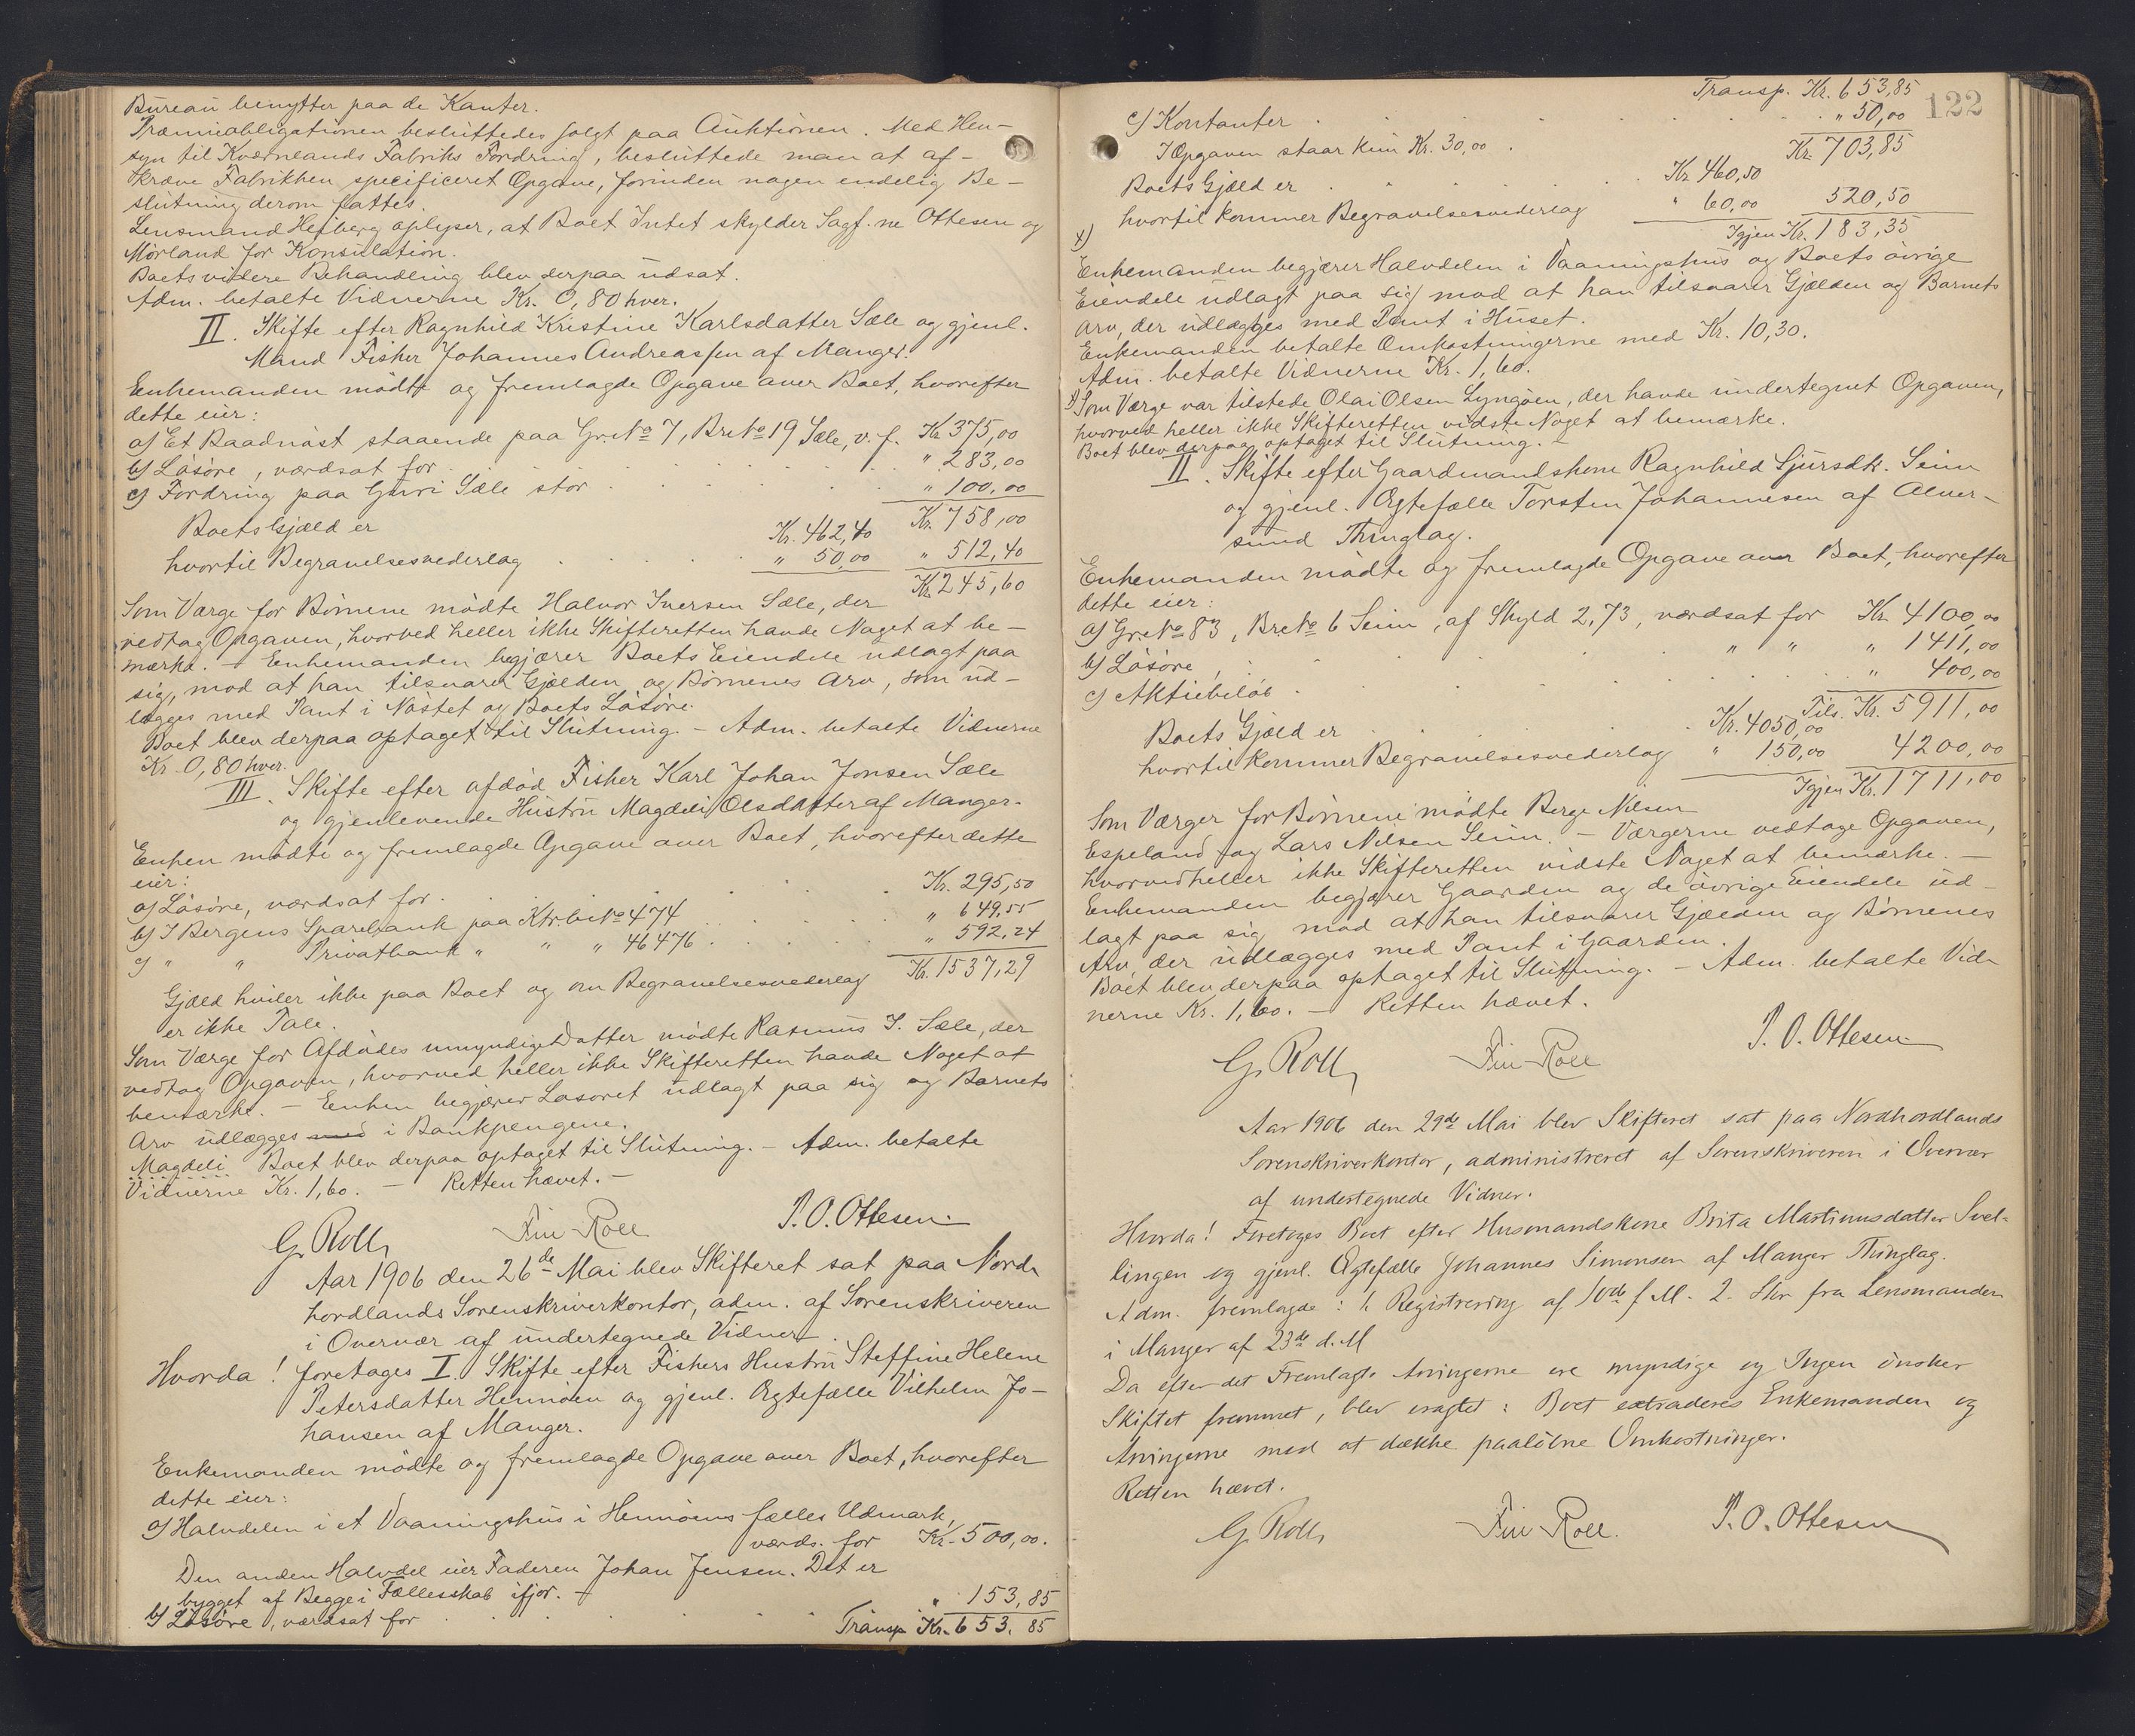 Bureau benytter paa de Kanter.
Præmieobligationen besluttedes solgt paa Auktionen. Med Hen-
syn til Kværnelands Fabriks Fordring, besluttede man at af-
kræve Fabrikken specificeret Opgave, forinden nogen endelig Be-
slutning derom fattes.
Lensmand Heiberg oplyser, at Boet Intet skylder Sagf.ne Ottesen og
Mørland for Konsulation.
Boets videre Behandling blev derpaa udsat.
Adm. betalte Vidnerne Kr. 0,80 hver.
II. Skifte efter Ragnhild Kristine Karlsdatter Sæle og gjenl.
Mand Fisker Johannes Andreassen af Manger.
Enkemanden mödte og fremlagde Opgave over Boet, hvorefter
dette eier:
a) Et Baadnöst staaende paa Grno 7, Brno 19 Sæle, v. f. Kr 375,00
b) Lösöre, værdsat for " 283,00
c) Fordring paa Guri Sæle stor " 100,00
Kr. 758,00
Boets Gjæld er Kr. 462,40
hvortil Begravelsesvederlag " 50,00 " 512,40
Kr. 245,60
Som Værge for Börnene mödte Halvor Iversen Sæle, der
vedtog Opgaven, hvorved heller ikke Skifteretten havde Noget at be-
mærke. - Enkemanden begjærer Boets Eiendele udlagt paa
sig, mod at han tilsvarer Gjælden og Börnenes Arv, som ud-
lægges med Pant i Nöstet og Boets Lösöre.
Boet blev derpaa optaget til Slutning. - Adm. betalte Vidnerne
Kr. 0,80 hver.
III. Skifte efter afdöd Fisker Karl Johan Jonsen Sæle
og gjenlevende Hustru Magdeli Olsdatter af Manger.
Enken mödte og fremlagde Opgave over Boet, hvorefter dette
eier:
a) Lösöre, værdsat for Kr. 295,50
b) I Bergens Sparebank paa Ktrbno 474 " 649,55
c) " " Privatbank " " " 46476 " 592,24
Kr. 1537,29
Gjæld hviler ikke paa Boet og om Begravelsesvederlag
er ikke Tale.
Som Værge for Afdödes umyndige Datter mödte Rasmus J. Sæle, der
vedtog Opgaven, hvorved heller ikke Skifteretten havde Noget at
bemærke. - Enken begjærer Løsøret udlagt paa sig og Barnets
Arv udlægges med i Bankpengene.
Magdeli Boet blev derpaa optaget til Slutning. - Adm. betalte
Vidnerne Kr. 1,60. - Retten hævet. -
G. Roll Finn Roll P. O. Ottesen
Aar 1906 den 26de Mai blev Skifteret sat paa Nord-
hordlands Sorenskriverkontor, adm. af Sorenskriveren
i Overvær af undertegnede Vidner.
Hvorda! foretages I. Skifte efter Fiskers Hustru Steffine Helene
Petersdatter Hennöen og gjenl. Ægtefælle Vilhelm Jo-
hansen af Manger.
Enkemanden mödte og fremlagde Opgave over Boet, hvorefter
dette eier:
a) Halvdelen i et Vaaningshus i Hennöens fælles Udmark,
værds. for Kr. 500,00.
Den anden Halvdel eier Faderen Johan Jensen. Det er
bygget af Begge i Fællesskab ifjor. -
b) Lösöre, værdsat for " 153,85
Transp. Kr. 653,85
122
Transp. Kr. 653,85
c) Kontanter " 50,00
I Opgaven staar kun Kr. 30,00. Kr. 703,85
Boets Gjæld er Kr. 460,50
hvortil kommer Begravelsesvederlag " 60,00 520,50
Igjen Kr. 183,35
x)
Enkemanden begjærer Halvdelen i Vaaningshus og Boets övrige
Eiendele udlagt paa sig mod at han tilsvarer Gjælden og Barnets
Arv, der udlægges med Pant i Huset.
Enkemanden betalte Omkostningerne med Kr. 10,30.
Adm. betalte Vidnerne Kr. 1,60.
x) Som Værge var tilstede Olai Olsen Lyngöen, der havde undertegnet Opgaven,
hvorved heller ikke Skifteretten vidste Noget at bemærke.
Boet blev derpaa optaget til Slutning. -
II. Skifte efter Gaardmandskone Ragnhild Sjursdtr. Seim
og gjenl. Ægtefælle Torsten Johannesen af Alver-
sund Thinglag.
Enkemanden mödte og fremlagde Opgave over Boet, hvorefter
dette eier:
a) Grno 83, Brno 6 Seim, af Skyld 2,73, værdsat for Kr. 4100,00
b) Lösöre, " " " 1411,00
c) Aktiebelöb " 400,00
Tils. Kr. 5911,00
Boets Gjæld er Kr. 4050,00
hvortil kommer Begravelsesvederlag " 150,00 4200,00
Igjen Kr. 1711,00
Som Værger for Börnene mödte Berge Nilsen
Espeland og Lars Nilsen Seim. - Værgerne vedtoge Opgaven,
hvorved heller ikke Skifteretten vidste Noget at bemærke. -
Enkemanden begjærer Gaarden og de övrige Eiendele ud-
lagt paa sig mod at han tilsvarer Gjælden og Börnenes
Arv, der udlægges med Pant i Gaarden.
Boet blev derpaa optaget til Slutning. - Adm. betalte Vid-
nerne Kr. 1,60. - Retten hævet.
G. Roll Finn Roll P. O. Ottesen
Aar 1906 den 29de Mai blev Skifteret sat paa Nordhordlands
Sorenskriverkontor, administreret af Sorenskriveren i Overvær
af undertegnede Vidner.
Hvorda! Foretoges Boet efter Husmandskone Brita Martinusdatter Svel-
lingen og gjenl. Ægtefælle Johannes Simonsen af Manger Thinglag.
Adm. fremlagde: 1. Registrering af 10de f.M. 2. Skr fra Lensmanden
i Manger af 23de d.M
Da efter det Fremlagte Arvingerne ere myndige og Ingen önsker
Skiftet fremmet, blev eragtet: Boet extraderes Enkemanden og
Arvingerne mod at dække paalöbne Omkostninger.
Retten hævet.
G. Roll Finn Roll. P. O. Ottesen